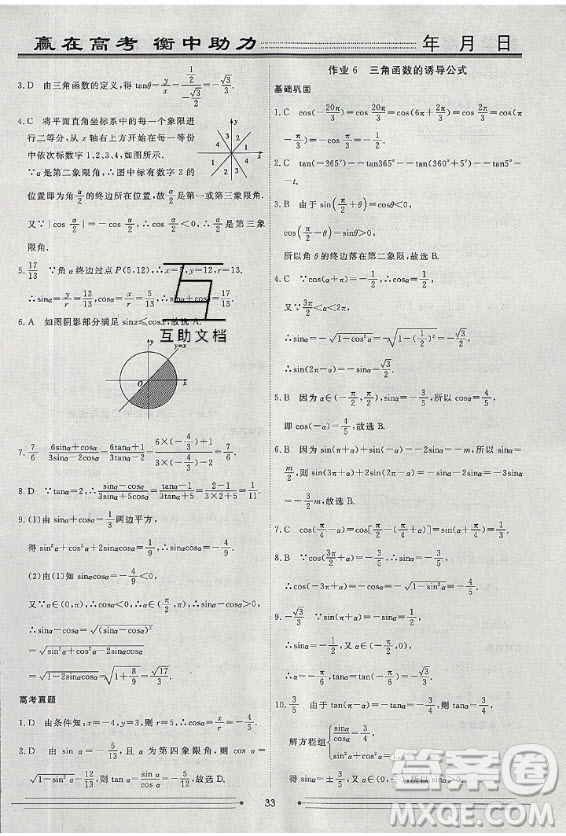 赢在高考 衡中助力 年 月 日
3.D 由三角函数的定义,得 tanθ=y/x=
4.C 将平面直角坐标系中的每一个象限进
行二等分,从 x 轴右上方开始在每一等份
中依次标数字 1,2,3,4,如图所示.
∵α是第二象限角,∴图中标有数字 2 的
位置即为角 α/2 的终边所在位置,故 α/2 是第一或第三象限角.
又∵|cos α/2|=-cos α/2,∴cos α/2≤0,∴α/2是第三象
限角.
5. 17/13 ∵角α终边过点 P(5,12),∴x=5,y=12,r=13.
∴sinα=y/r=12/13,cosα=x/r=5/13,∴sinα+cosα=17/13.
6.A 如图阴影部分满足 sinx≤cosx,故选 A.
y
y=x
O
x
互助文档
7. 7/6 (6sinα+cosα)/(3sinα-2cosα)=(6tanα+1)/(3tanα-2)=(6×(-4/3)+1)/(3×(-4/3)-2)=7/6.
8.D ∵tanα=2,∴(sinα-cosα)/(3sinα+5cosα)=(tanα-1)/(3tanα+5)=(2-1)/(3×2+5)=1/11.
9.(1)由 sinα+cosα=1/3 两边平方,
得 sinαcosα=-4/9.
(2)由(1)得 sinαcosα=-4/9,
又∵α∈(0,π),∴cosα<0,∴α∈(π/2,π),
∴sinα-cosα=√(sinα-cosα)²
=√(sin²α+cos²α-2sinαcosα)
=√(1-2sinαcosα)=√(1+8/9)=√17/3.
高考真题
1.D 由条件知:x=-4,y=3,则 r=5,∴cosα=x/r=-4/5.
2.D 由 sin α=-5/13,且 α 为第四象限角,则 cos α=
√(1-sin²α)=12/13,则 tanα=sinα/cosα=-5/12,故选 D.
作业 6 三角函数的诱导公式
基础巩固
1.C cos(-20π/3)=cos(20π/3)=cos(6π+2π/3)=cos(2π/3)
2.C tan(-365°)=-tan365°=-tan(360°+5°)=-tan5°=
-t.
3.B 由于 sin(π/2+θ)=cosθ<0,
cos(π/2-θ)=sinθ>0,
所以角θ的终边落在第二象限,故选 B.
4.D ∵cos(α+π)=-1/2,∴cosα=1/2.
又 3π/2<α<2π,
∴sinα=-√(1-cos²α)=-√(1-(1/2)²)=-√3/2.
∴sin(2π-α)=-sinα=√3/2.
5.B 因为α∈(-π/2,π/2),sinα=-3/5,所以 cosα=4/5,
即 cos(π-α)=-4/5.
6.B 因为 sin(π+α)+cos(π/2+α)=-m,所以 sinα=
m/2,则 cos(3π/2-α)+2sin(6π-α)=-sinα-2sinα=-3sinα
=-3/2m,故选 B.
8.B ∵cos(3π/2+α)=sinα=-3/5,
∴cosα=
9. ∵sin(π+α)=-sinα,
∴sinα=
∴tanα=
10. 由于 tan(π-α)=-tanα=-3/4,则 tanα=3/4,
解方程组
得 sinα=±3/5,又因为
所以 sinα=-3/5.
33
答案圈
MXQE.COM